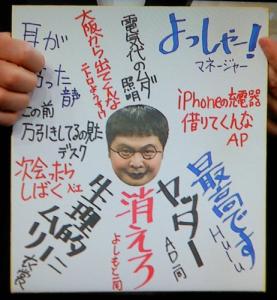 よっしゃー!
マネージャー
電気代のムダ
照明
大阪から出てくんな
耳が
声
この前
万引きしてるの見た
デスク
iPhoneの充電器
借りてくんな
AP
次会ったら
しばく
最高です
Hulu
ヤッター
AD一同
消えろ
よしもと一同
生理的に
ムリー